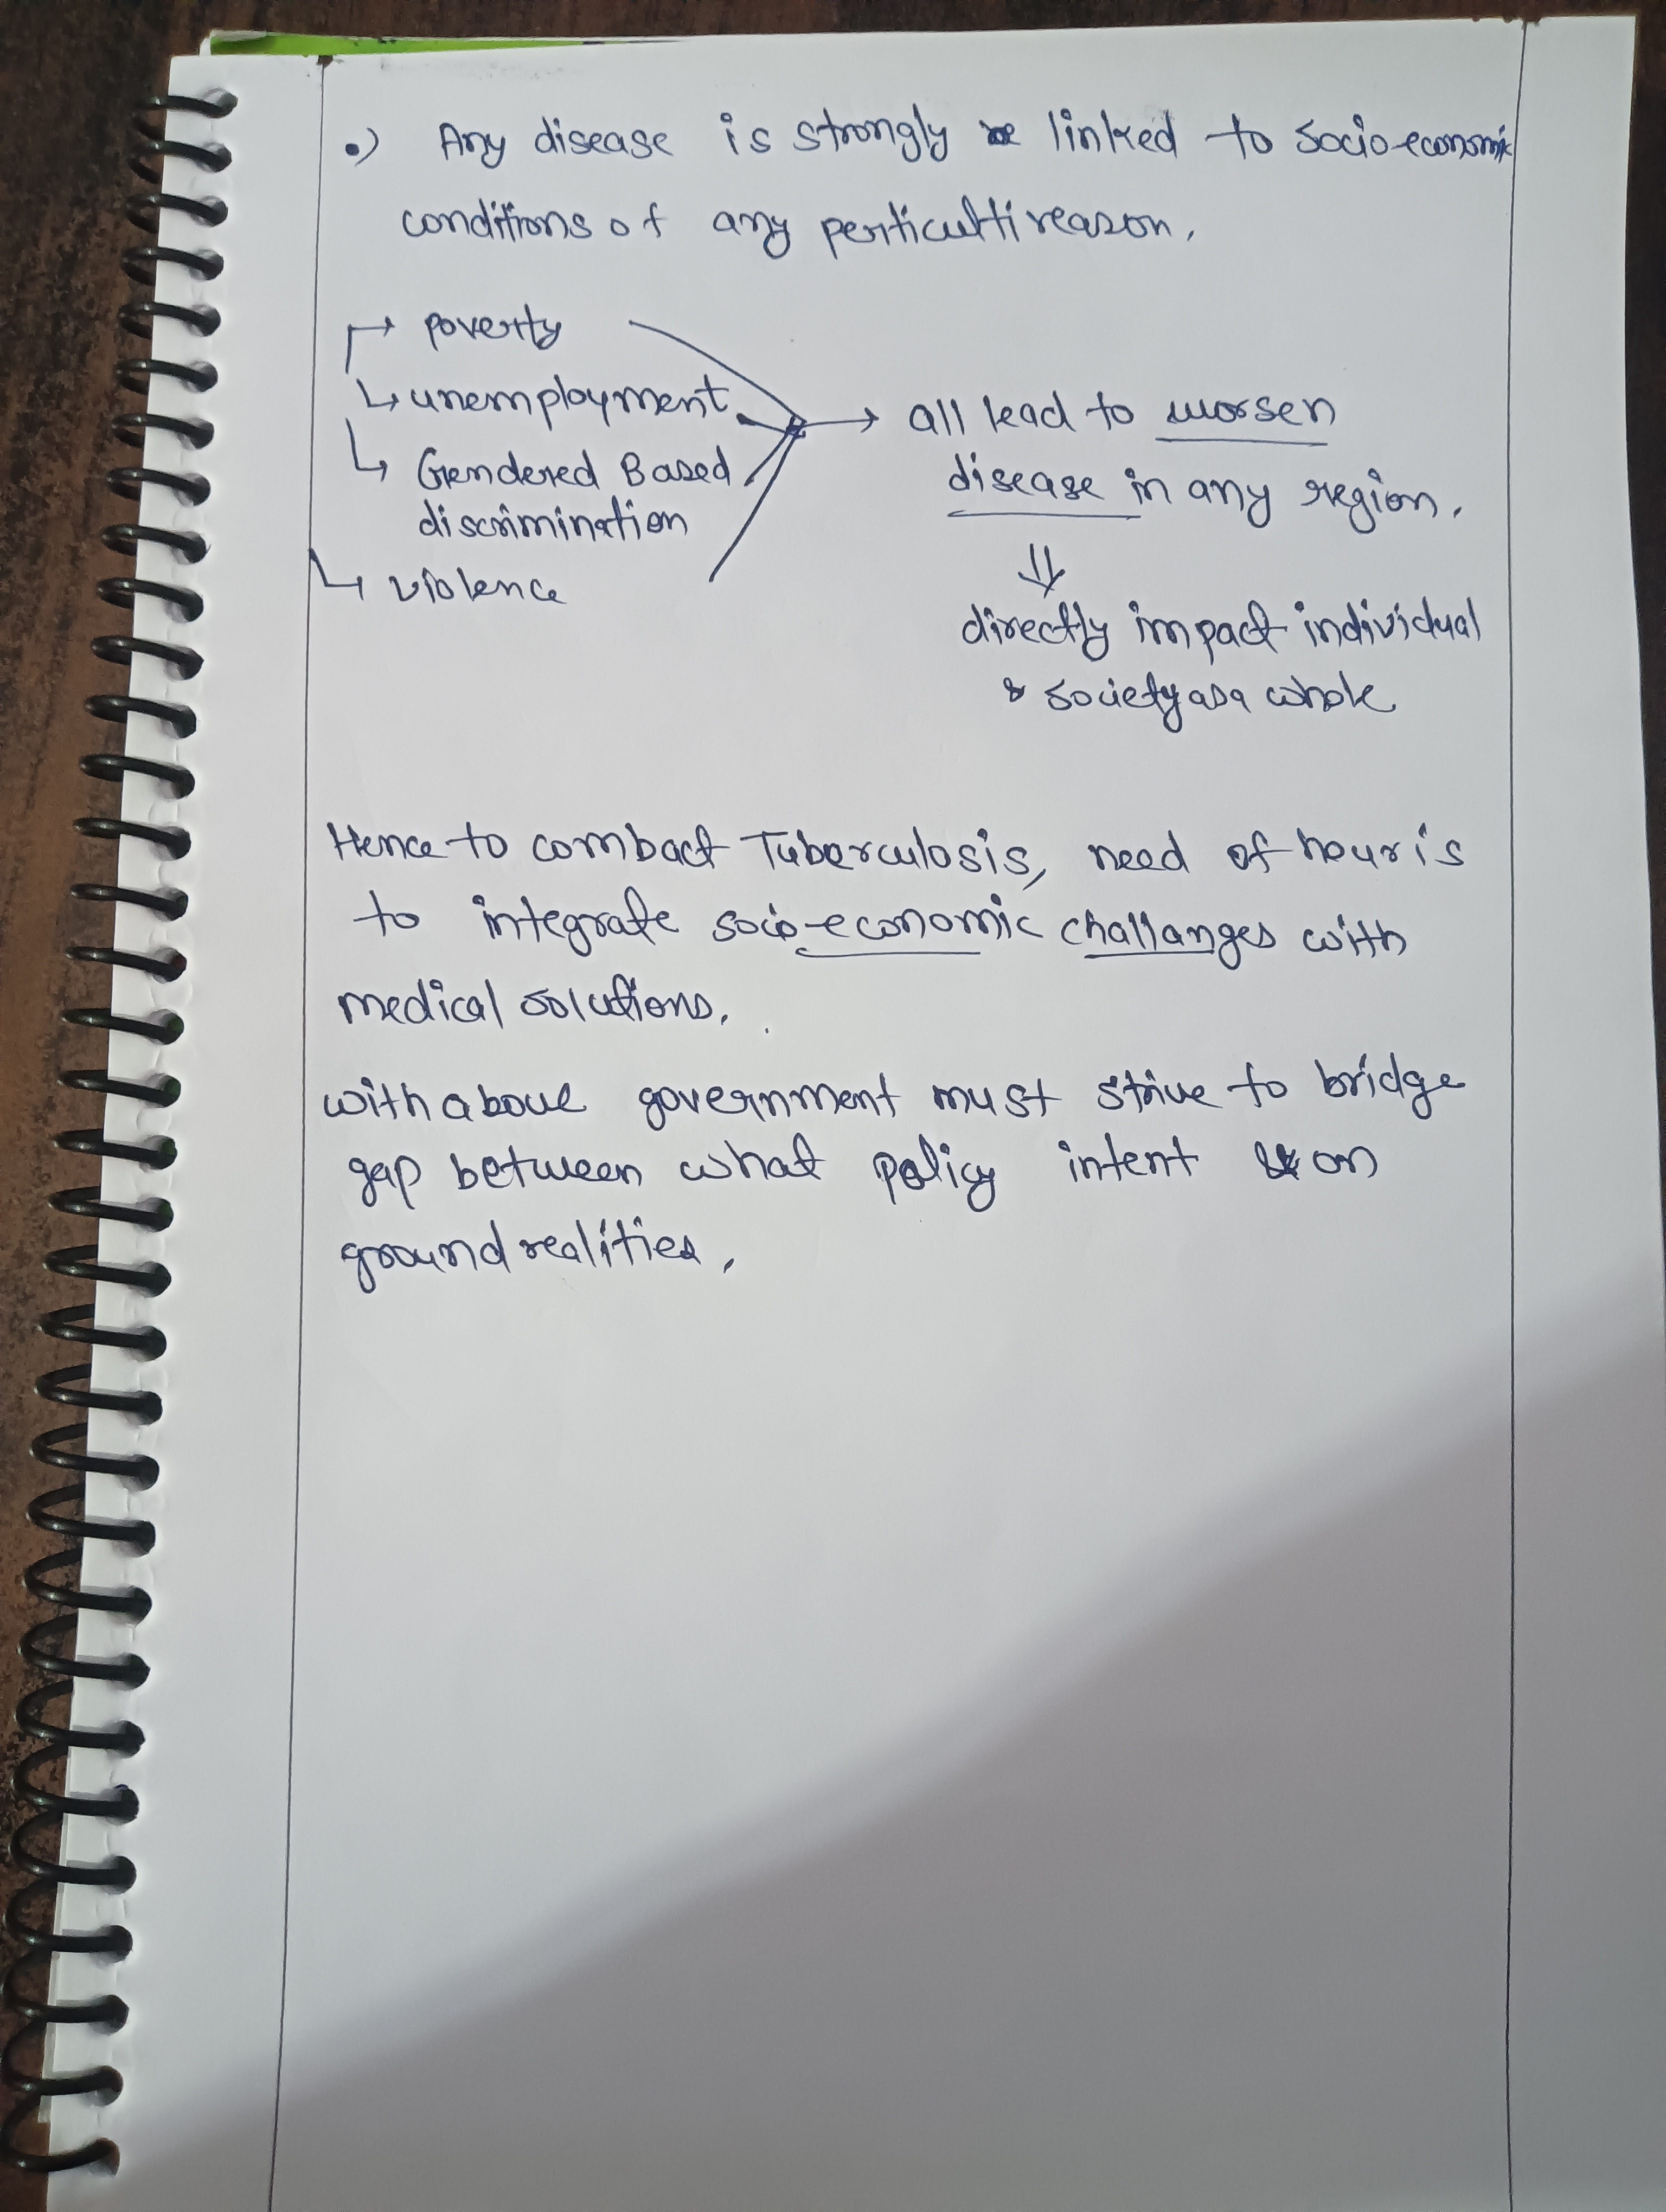 •) Any disease is strongly linked to socio-economic
conditions of any perticulti reason.
→ poverty
↳ unemployment
↳ Gendered Based
discrimination
↳ violence
→ all lead to worsen
disease in any region.
⇓
directly impact individual
& society as a whole
Hence to combact Tuberculosis, need of hour is
to integrate socio-economic challanges with
medical solutions.
with above government must strive to bridge
gap between what policy intent & on
ground realities,